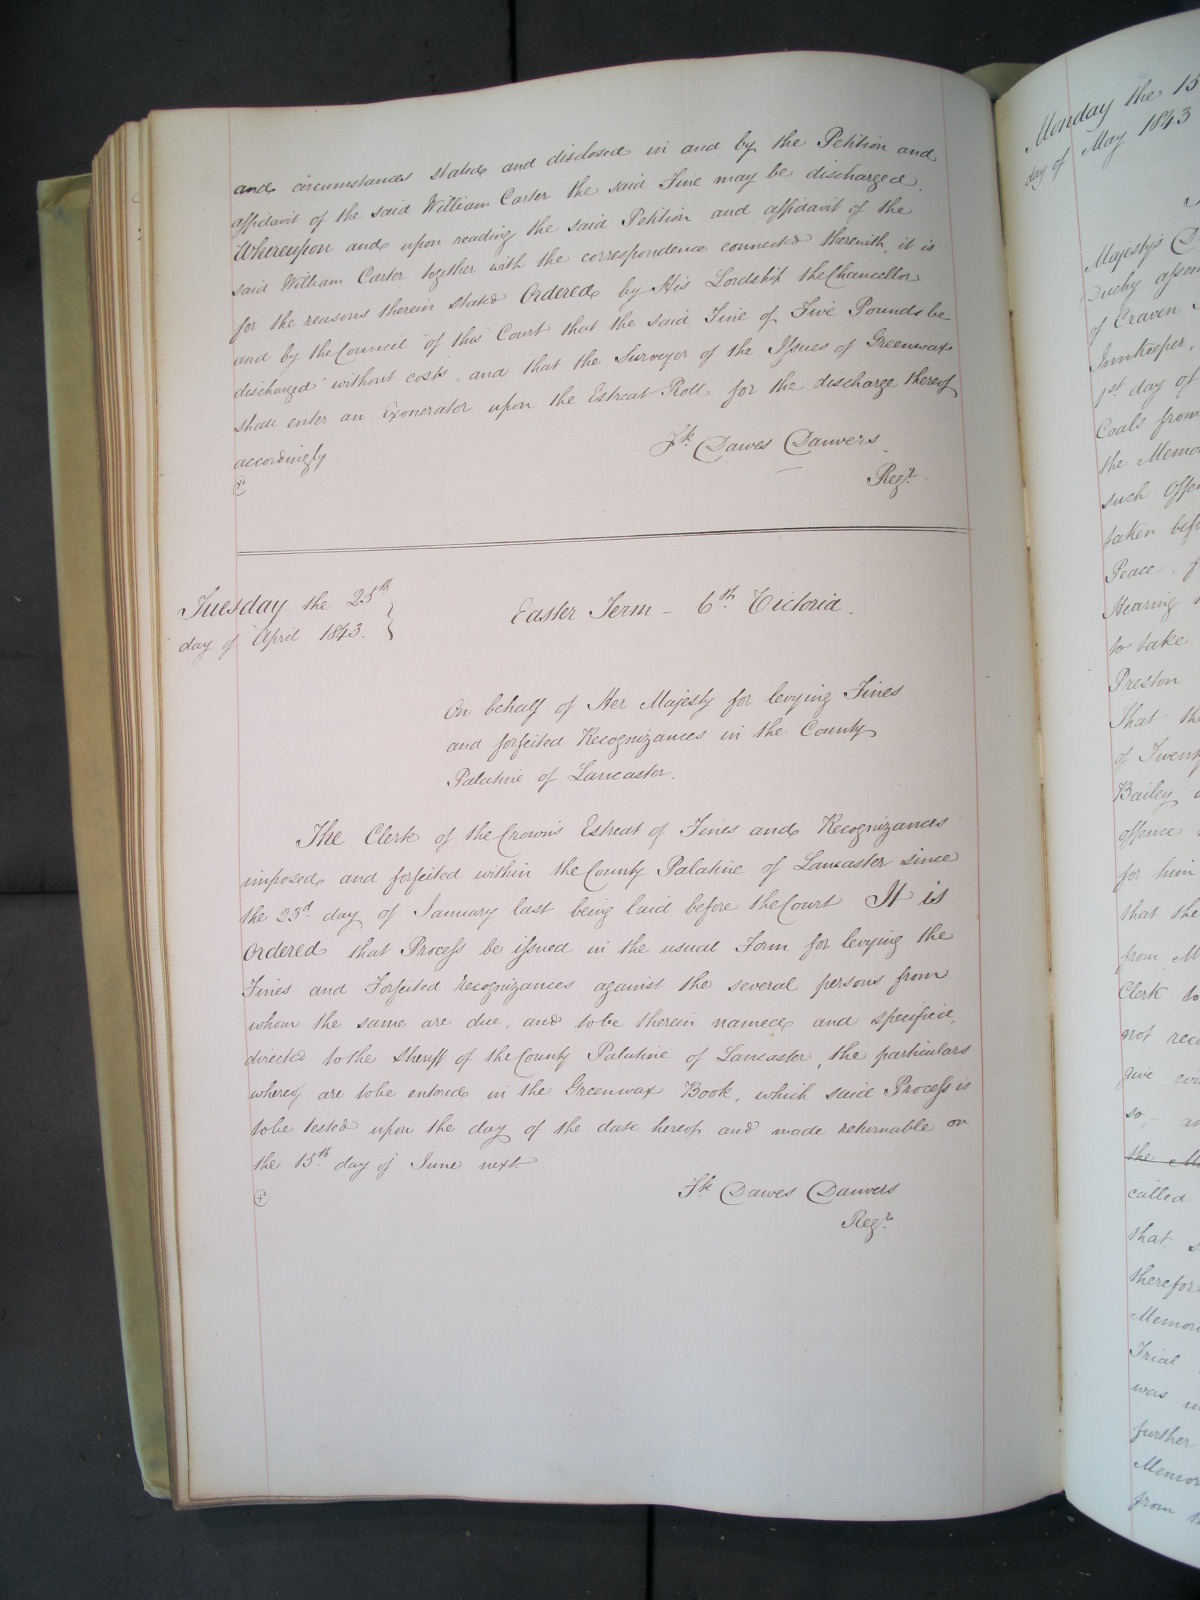 and circumstances stated and disclosed in and by the Petition and
affidavit of the said William Carter the said Fine may be discharged.
Whereupon and upon reading the said Petition and affidavit of the
said William Carter together with the correspondence connected therewith, it is
for the reasons therein stated Ordered by His Lordship the Chancellor
and by the Council of this Court that the said Fine of Five Pounds be
discharged without costs, and that the Surveyor of the Issues of Greenwax
shall enter an Exonerator upon the Estreat Roll for the discharge thereof
accordingly.
Fk. Dawes Danvers
Regr.
Tuesday the 25th
day of April 1843.
Easter Term - 6th Victoria.
On behalf of Her Majesty for levying Fines
and forfeited Recognizances in the County
Palatine of Lancaster.
The Clerk of the Crown's Estreat of Fines and Recognizances
imposed and forfeited within the County Palatine of Lancaster since
the 23d day of January last being laid before the Court It is
Ordered that Process be issued in the usual Form for levying the
Fines and Forfeited recognizances against the several persons from
whom the same are due, and to be therein named and specified,
directed to the Sheriff of the County Palatine of Lancaster, the particulars
whereof are to be entered in the Greenwax Book, which said Process is
to be tested upon the day of the date hereof and made returnable on
the 15th day of June next.
Fk. Dawes Danvers
Regr.
Monday the 15
day of May 1843
Majesty's D
Duchy assem
of Craven
Innkeeper,
1st day of
Coals from
the Memo
such Offe
taken bef
Peace, f
Hearing
to take
Preston
That the
of Twent
Bailey
offence
for him
that the
from M
Clerk to
not rece
give evi
so, - an
the M
called
that s
therefor
Memor
Trial
was u
further
Memor
from